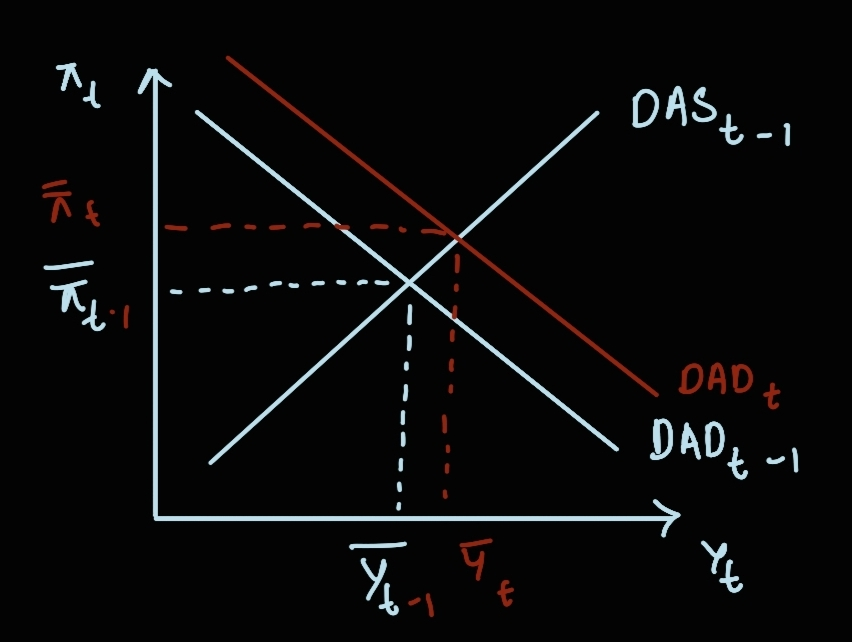 π_t
DAS_{t-1}
π̿_t
π̅_{t-1}
DAD_t
DAD_{t-1}
Y̅_{t-1}
Y̅_t
Y_t